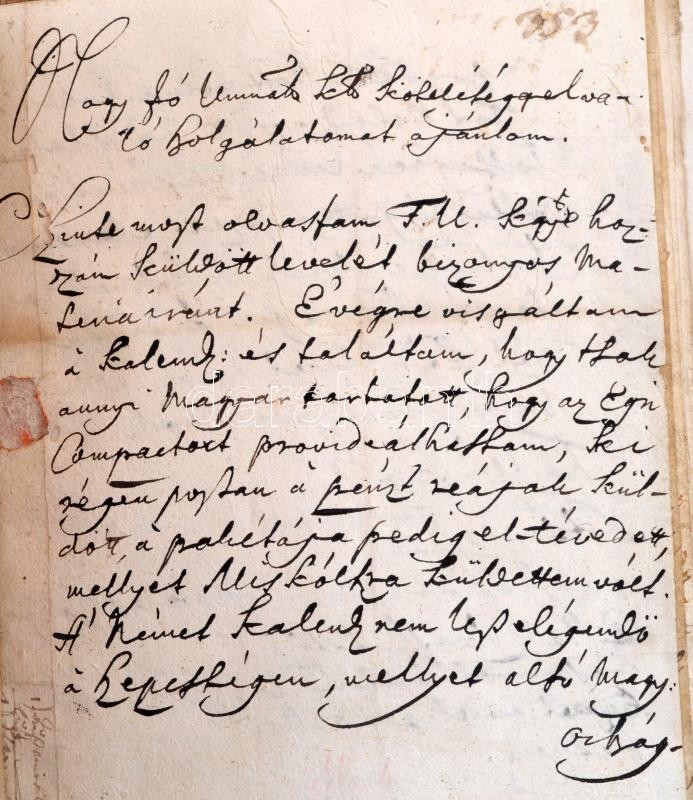 353
Nagy Jó Uram̃ak K[...] kötelességgel va-
ló szolgálatomat ajánlom.
Szinte most olvastam F. U. Kgd hoz-
zám küldött levelét bizonyos Ma-
teriáiránt. Évégre visgáltam
à Kalend: és találtam, hogy tsak
annyi Magyar tartatott, hogy az Egri
Compactort provideálhattam, ki
régen postan à pénzt reájok kül-
dött, à pakétája pedig el-tévedett,
mellyet Miskóltzra küldettem vólt.
A' Német Kalend. nem lesz elégendő
à Szepességen, mellyet alsó Magy:
ország-